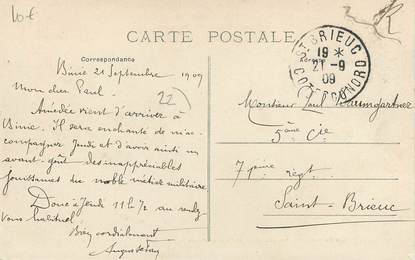 10 €
CARTE POSTALE
Correspondance
Adresse
ST BRIEUC
19 *
21 - 9
09
COTES DU NORD
Binic 21 Septembre 1909
22
Mon cher Paul.
Amédée vient d'arriver à
Binic. Il sera enchanté de m'ac-
compagner Jeudi et d'avoir ainsi un
avant-goût des inappréciables
jouissances du noble métier militaire.
Donc à Jeudi 11h 1/2 au rendez
vous habituel
Bien cordialement
Monsieur Paul Baumgartner
5ème Cie
7 1ème régt
Saint-Brieuc